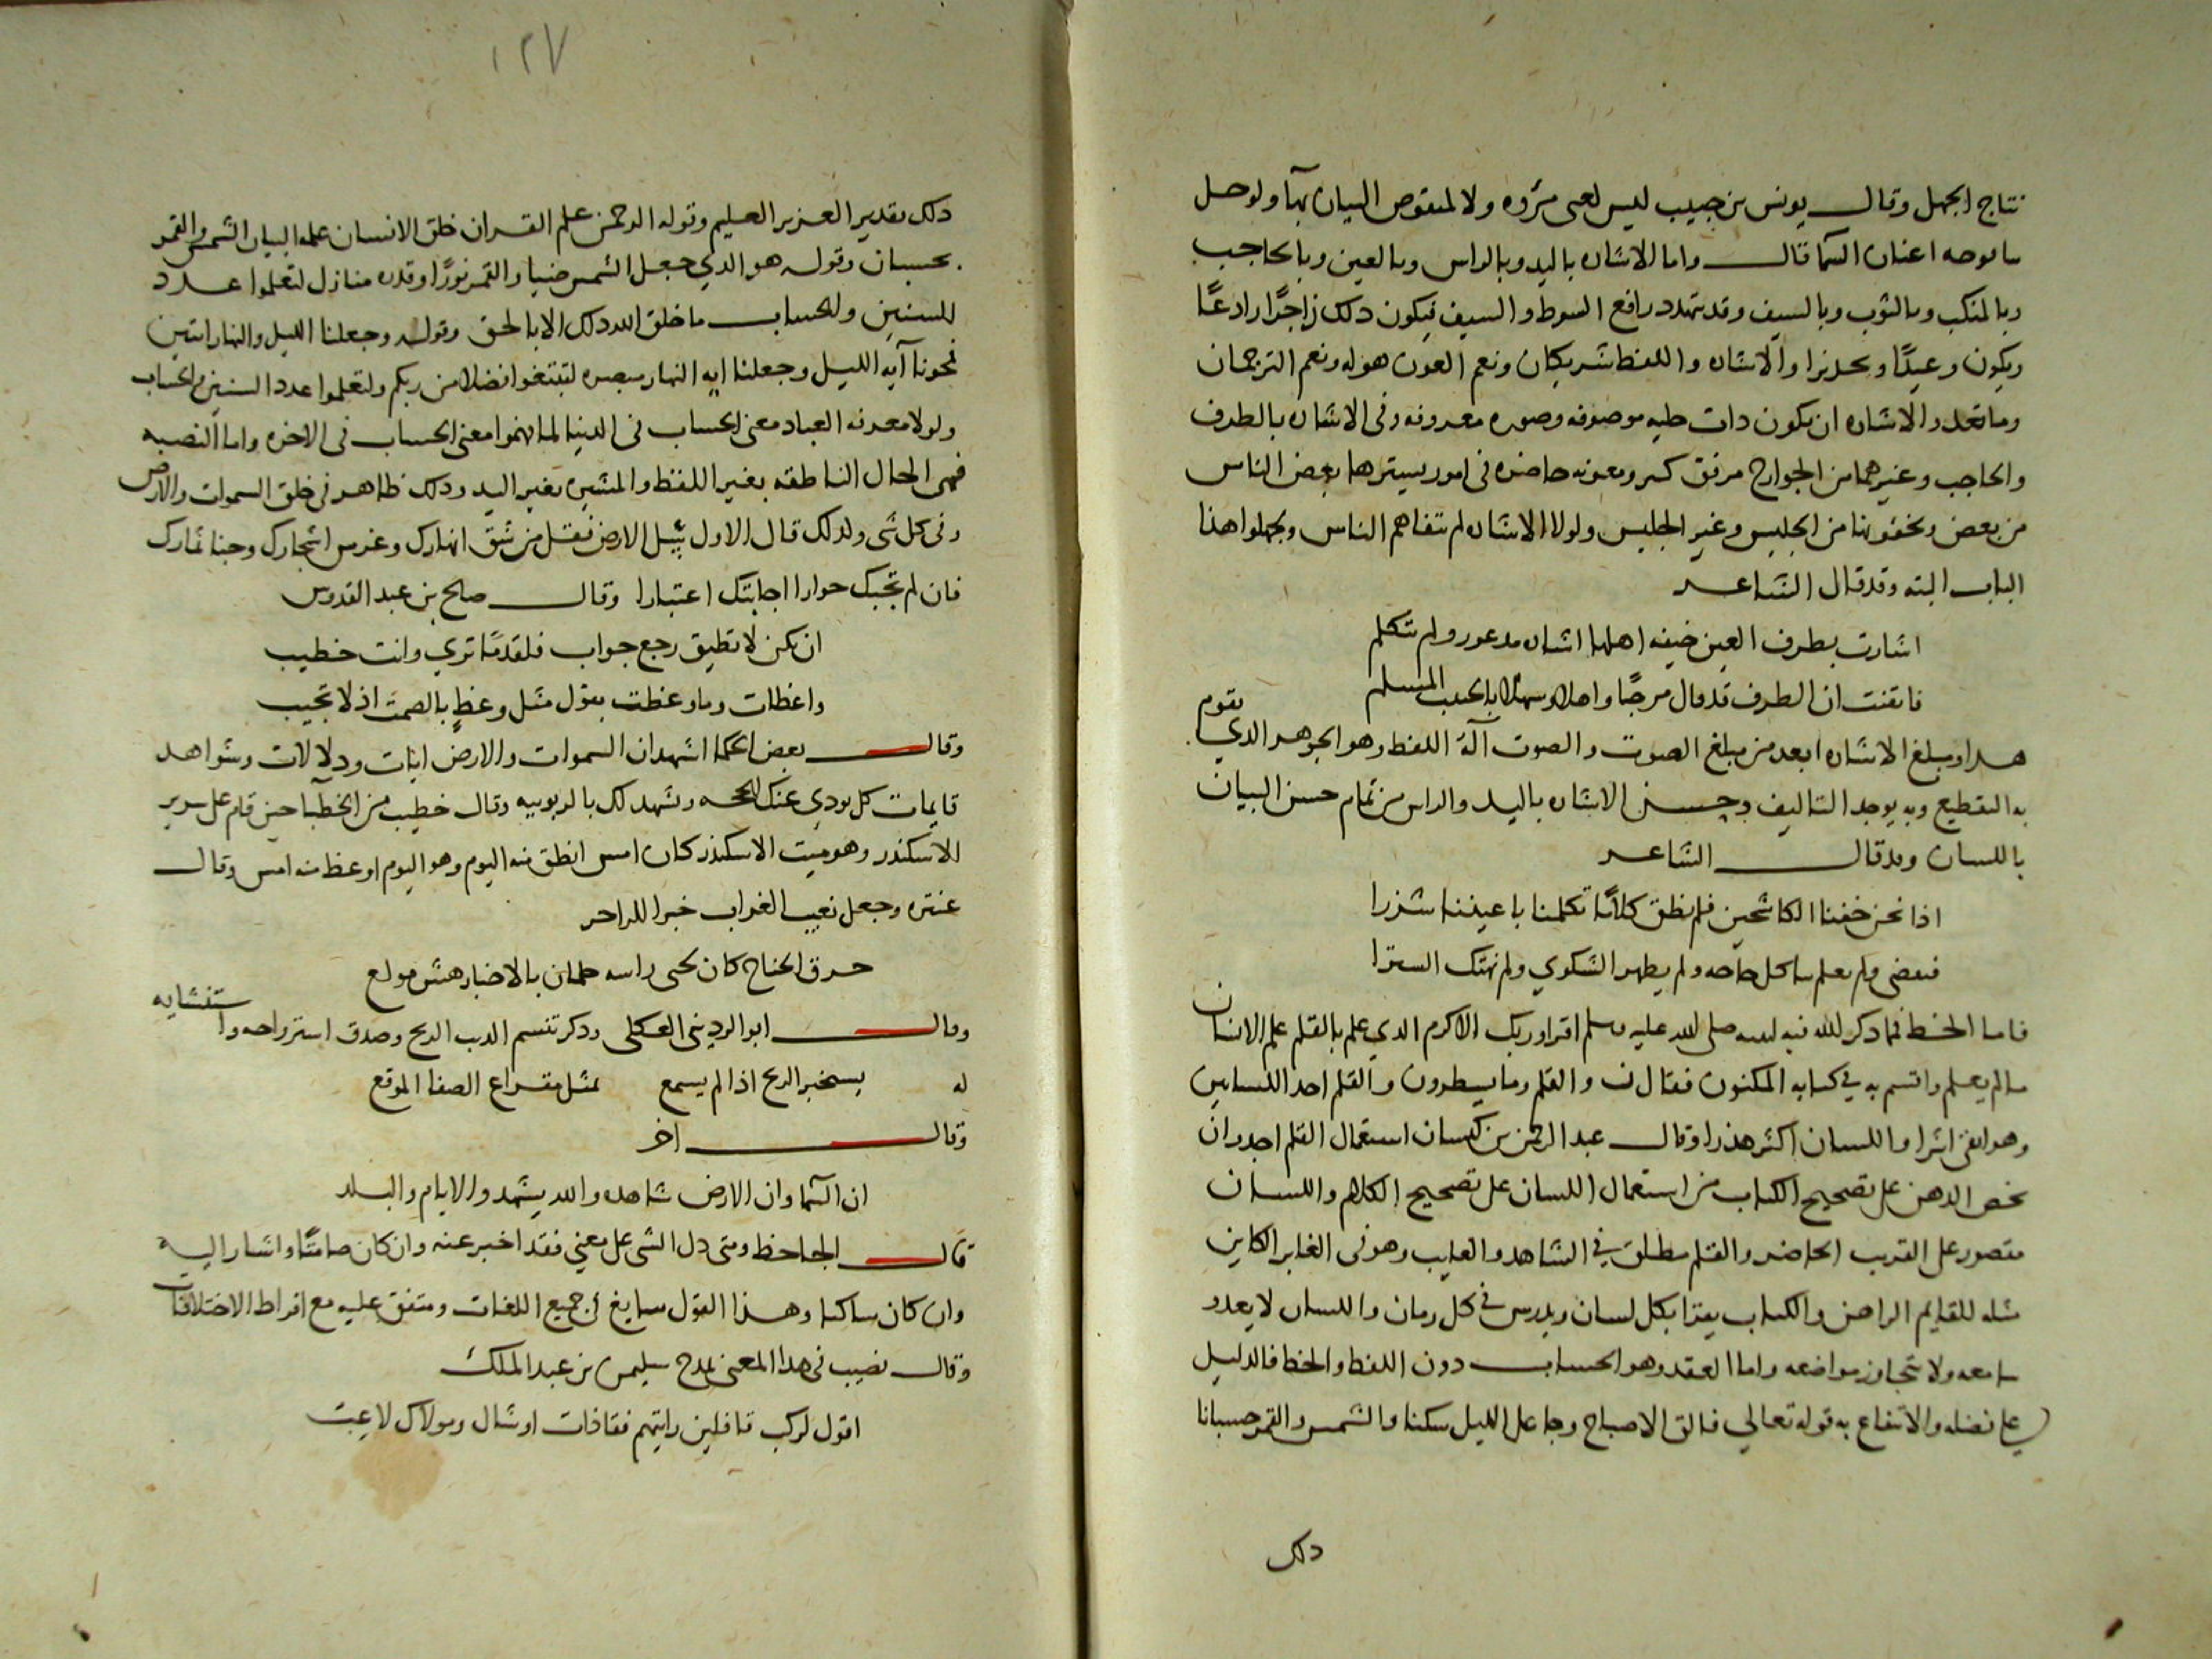 نتاج الجهل وقال يونس بن حبيب ليس لعى مروه ولا لمنقوص البيان بهآ ولو حل
بيافوخه اعنان السما قال واما الاشاره باليد وبالراس وبالعين وبالحاجب
وبالمنكب وبالثوب وبالسيف وقد يتهدد رافع السوط والسيف فيكون دلك زاجرًا رادعًا
ويكون وعيدًا وتحذيرا والاشاره واللفظ شريكان ونعم العون هو له ونعم الترجمان
وما تعدو الاشاره ان يكون دات حليه موصوفه وصوره معروفه وفى الاشاره بالطرف
والحاجب وغيرهما من الجوارح مرفق كبير ومعونه حاضره فى امور يسيترها بعض الناس
من بعض ويخفونها من الجليس وغير الجليس ولولا الاشاره لم تتفاهم الناس وجهلوا هذا
الباب البته وقد قال الشاعر
اشارت بطرف العين خيفه اهلها اشاره مدعور ولم تتكلم
فايقنت ان الطرف قد قال مرحبًا واهلا وسهلا بالحبيب المسلم
هدا ومبلغ الاشاره ابعد من مبلغ الصوت والصوت آلة اللفظ وهو الجوهر الدي يقوم
به التقطيع وبه يوجد التاليف وحسن الاشاره باليد والراس من تمام حسن البيان
باللسان وقد قال الشاعر
اذا نحن خفنا الكاشحين فلم نطق كلامًا تكلمنا باعيننا شذرا
فنقضى ولم يعلم بنا كل حاجه ولم يظهر الشكوي ولم نهتك السترا
فاما الخط فما دكر الله فيه لنبيه صلى الله عليه وسلم اقرا وربك الاكرم الدي علم بالقلم علم الانسان
مالم يعلم واقسم به في كتابه المكنون فقال ن والقلم وما يسطرون والقلم احد اللسانين
وهو ابقى اثرا واللسان اكثر هذرا وقال عبد الرحمن بن كيسان استعمال القلم اجدر ان
يحض الدهن على تصحيح الكتاب من استعمال اللسان على تصحيح الكلام واللسان
مقصور على القريب الحاضر والقلم مطلق في الشاهد والغايب وهو فى الغابر الكاين
مثله للقايم الراهن والكتاب يقرا بكل لسان ويدرس في كل زمان واللسان لا يعدو
سامعه ولا يتجاوز مواضعه واما العقد وهو الحساب دون اللفظ والخط فالدليل
على فضله والانتفاع به قوله تعالي فالق الاصباح وجاعل الليل سكنا والشمس والقمر حسبانا
دلك
١٢٧
دلك تقدير العزيز العليم وقوله الرحمن علم القران خلق الانسان علمه البيان الشمس والقمر
بحسبان وقوله هو الدي جعل الشمس ضيا والقمر نورًا وقدره منازل لتعلموا عدد
السنين والحساب ما خلق الله دلك الا بالحق وقوله وجعلنا الليل والنهار ايتين
فمحونا آيه الليل وجعلنا ايه النهار مبصره لتبتغوا فضلا من ربكم ولتعلموا عدد السنين والحساب
ولولا معرفه العباد معنى الحساب فى الدنيا لما فهموا معنى الحساب فى الاخره واما النصبه
فهى الحال الناطقه بغير اللفظ والمشيره بغير اليد ودلك ظاهر فى خلق السموات والارض
وفى كل شى ولدلك قال الاول سل الارض فقل من شق انهارك وغرس اشجارك وجنا ثمارك
فان لم تجبك حوارا اجابتك اعتبارا وقال صالح بن عبد القدوس
ان يكن لا تطيق رجع جواب فلقد ما تري وانت خطيب
واعظات وما وعظت بقول مثل وعظٍ بالصمت اذ لا تجيب
وقال بعض الحكما اشهد ان السموات والارض ايات ودلالات وشواهد
قايمات كل يودي عنك الحجه ويشهد لك بالربوبيه وقال خطيب من الخطبآ حين قام على سرير
الاسكندر وهو ميت الاسكندر كان امس انطق منه اليوم وهو اليوم اوعظ منه امس وقال
عنتره وجعل نعيب الغراب خبرا للزاجر
حرق الجناح كان لحى راسه جلمان بالاخبار هش مولع
وقال ابو الردينى العكلى ودكر تنسم الديب الريح وصدق استرواحه واستنشايه
له يستخبر الريح اذا لم يسمع بمثل مقراع الصفا الموقع
وقال اخر
ان السما وان الارض شاهده والله يشهد والايام والبلد
قال الجاحظ ومتى دل الشى على معني فقد اخبر عنه وان كان صامتًا واشار اليه
وان كان ساكنا وهذا القول سايغ فى جميع اللغات ومتفق عليه مع افراط الاختلافات
وقال نصيب فى هدا المعنى يمدح سليمن بن عبد الملك
اقول لركب قافلين رايتهم قفا ذات اوشال ومولاك لاعبت